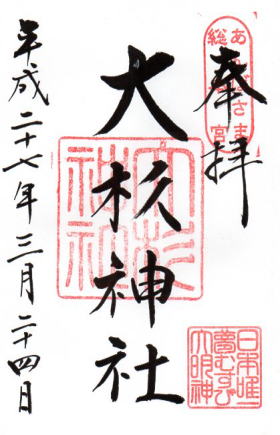 奉拝
総宮
あんばさま
大杉神社
平成二十七年三月二十四日
日本唯一
夢むすび
大明神